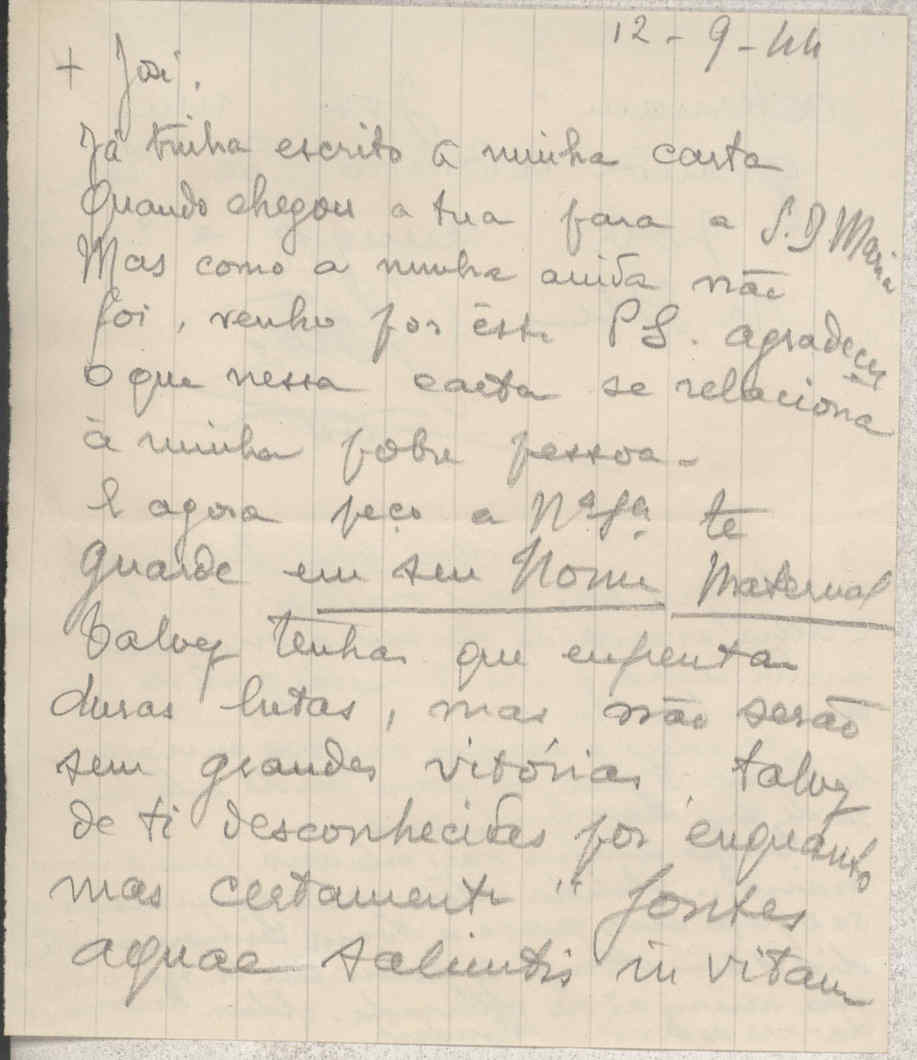 12-9-44
+ José.
Já tinha escrito a minha carta
Quando chegou a tua para a S. D Maria
Mas como a minha ainda não
foi, venho por êste PS. agradecer
o que nessa carta se relaciona
à minha pobre pessoa -
E agora peço a Nª Sª. te
guarde em seu Nome Maternal
Talvez tenhas que enfrentar
duras lutas, mas não serão
sem grandes vitórias, talvez
de ti desconhecidas por enquanto
mas certamente "fontes
aquae salientis in vitam